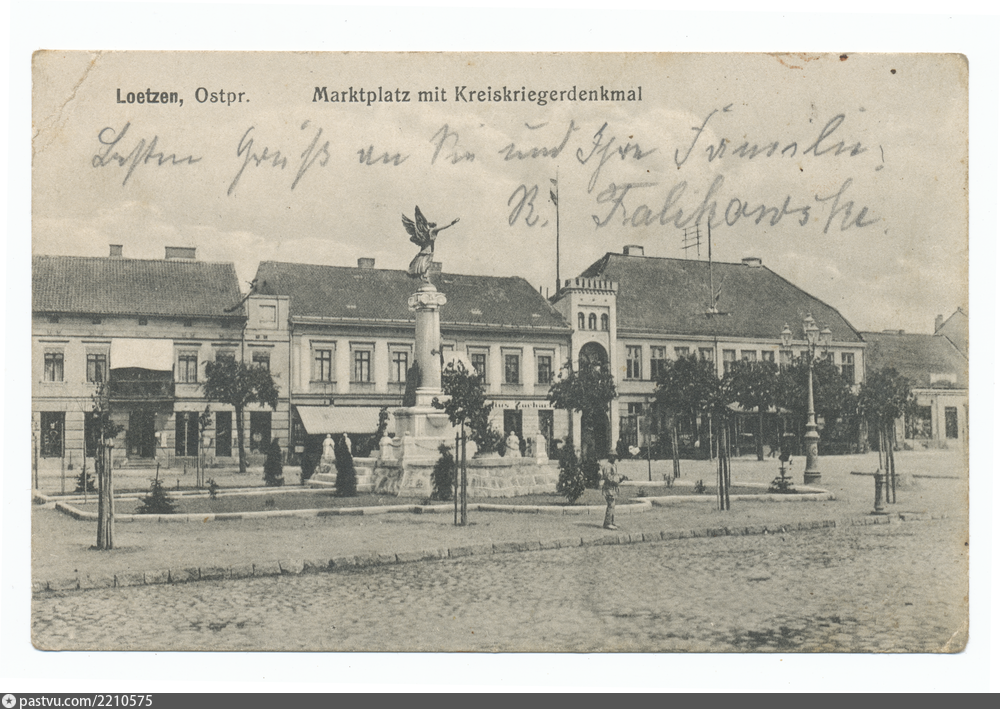 Loetzen, Ostpr. Marktplatz mit Kreiskriegerdenkmal
Besten Gruß an Sie und Ihre Familie,
R.
pastvu.com/2210575